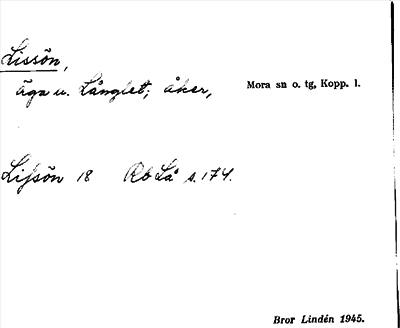 Lissön,
äga u. Långlet; åker, Mora sn o. tg, Kopp. l.
Lifsön 18 Rb Lå s. 174.
Bror Lindén 1945.